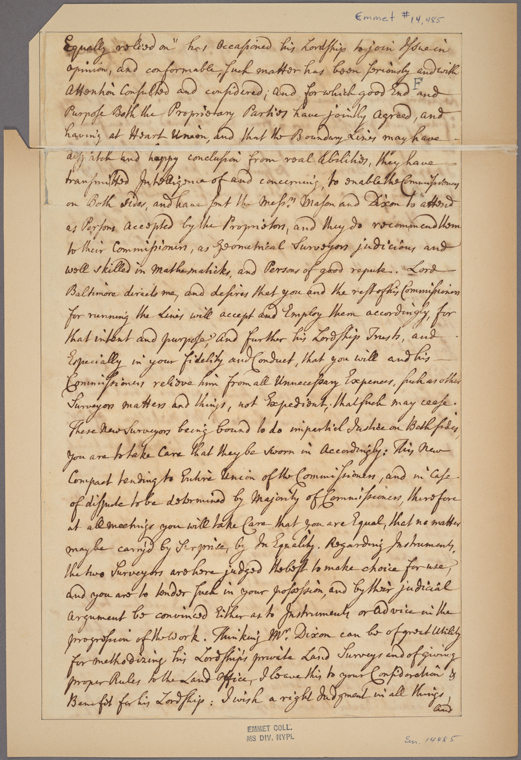 Emmet #14,485
Equally relieved on" has Occasioned his Lordship to join Issue in
opinion, and conformable such matter has been seriously and with
F
Attention Consulted and considered, and for which good End and
Purpose Both the Proprietary Parties have joinly Agreed, and
having at Heart Union, and that the Boundary Lines may have
dispatch and happy conclusion from real Abilities, they have
transmitted Intelligence of and concerning, to enable the Commissioners
on Both sides, and have sent the Mess.rs Mason and Dixon to attend
as Persons Accepted by the Proprietors, and they do recommend them
to their Commissioners, as Geometrical Surveyors judicious and
well skilled in Mathematicks, and Persons of good repute. Lord
Baltimore directs me, and desires that you and the rest of his Commissioners
for running the Lines will accept and Employ them accordingly, for
that intent and purpose: And further his Lordship Trusts, and
Especially in your fidelity and Conduct, that you will and his
Commissioners relieve him from all Unnecessary Expences, such as other
Surveyors matters and things, not Expedient, that such may cease.
These New Surveyors being bound to do impartial Justice on Both sides,
you are to take Care that they be sworn in Accordingly: This New
Compact tending to Entire Union of the Commissioners, and in Case
of dispute to be determined by Majority of Commissioners, therefore
at all meetings you will take Care that you are Equal, that no matter
may be carry'd by Surprize, by In Equality. Regarding Instruments,
the two Surveyors are here judged the best to make choice for use,
and you are to tender such in your possession, and by their judicial
Argument be convinced Either as to Instruments or Advice in the
progression of the Work. Thinking Mr. Dixon can be of great Utility
for methodizing his Lordship's private Land Surveys and of giving
proper Rules to the Land Office, I leave this to your Consideration &
Benefit for his Lordship: I wish a right Judgment in all things,
and
EMMET COLL.
MS DIV. NYPL